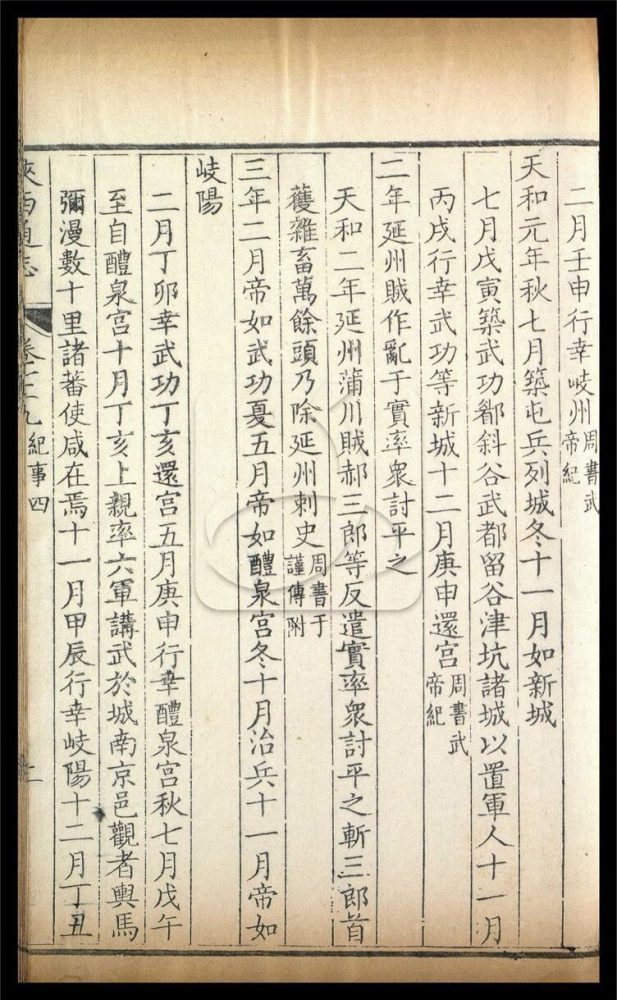 二月壬申行幸岐州周書武帝紀
天和元年秋七月築屯兵列城冬十一月如新城
七月戊寅築武功郿斜谷武都留谷津坑諸城以置軍人十一月
丙戌行幸武功等新城十二月庚申還宮周書武帝紀
二年延州賊作亂于實率衆討平之
天和二年延州蒲川賊郝三郎等反遣實率衆討平之斬三郎首
獲雜畜萬餘頭乃除延州刺史周書于謹傳附
三年二月帝如武功夏五月帝如醴泉宮冬十月治兵十一月帝如
岐陽
二月丁卯幸武功丁亥還宮五月庚申行幸醴泉宮秋七月戊午
至自醴泉宮十月丁亥上親率六軍講武於城南京邑觀者輿馬
彌漫數十里諸蕃使咸在焉十一月甲辰行幸岐陽十二月丁丑
陝西通志 卷 九 紀事四